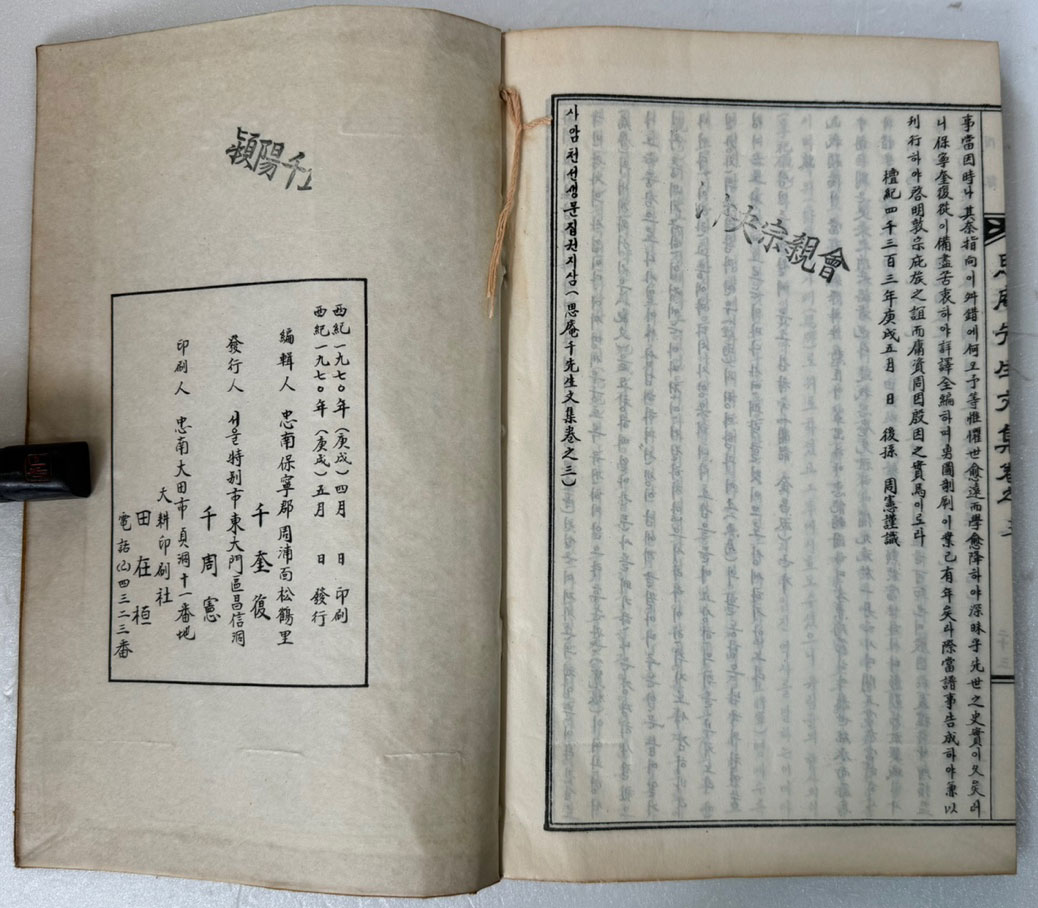 事當因時나 其奈指向이 舛錯에 何오 予等惟懼世愈遠而學愈降하야 深昧乎先世之史實이 久矣러
니 保寧奎復從이 備盡苦衷하야 詳譯全編하며 另圖制刷이 業已有年矣라 際當譜事告成하야 兼以
刊行하야 啓明敦宗庇族之誼而庸資周因殷因之實焉이로라
檀紀四千三百三年庚戌五月 日 後孫 周憲謹識
사암천선생문집권지삼(思庵千先生文集卷之三)
央宗親會
潁陽千
西紀一九七〇年(庚戌)四月 日 印刷
西紀一九七〇年(庚戌)五月 日 發行
編輯人 忠南保寧郡周浦面松鶴里
千奎復
發行人 서울特別市東大門區昌信洞
千周憲
印刷人 忠南大田市貞洞十一番地
天耕印刷社
田在桓
電話(2)四三二三番